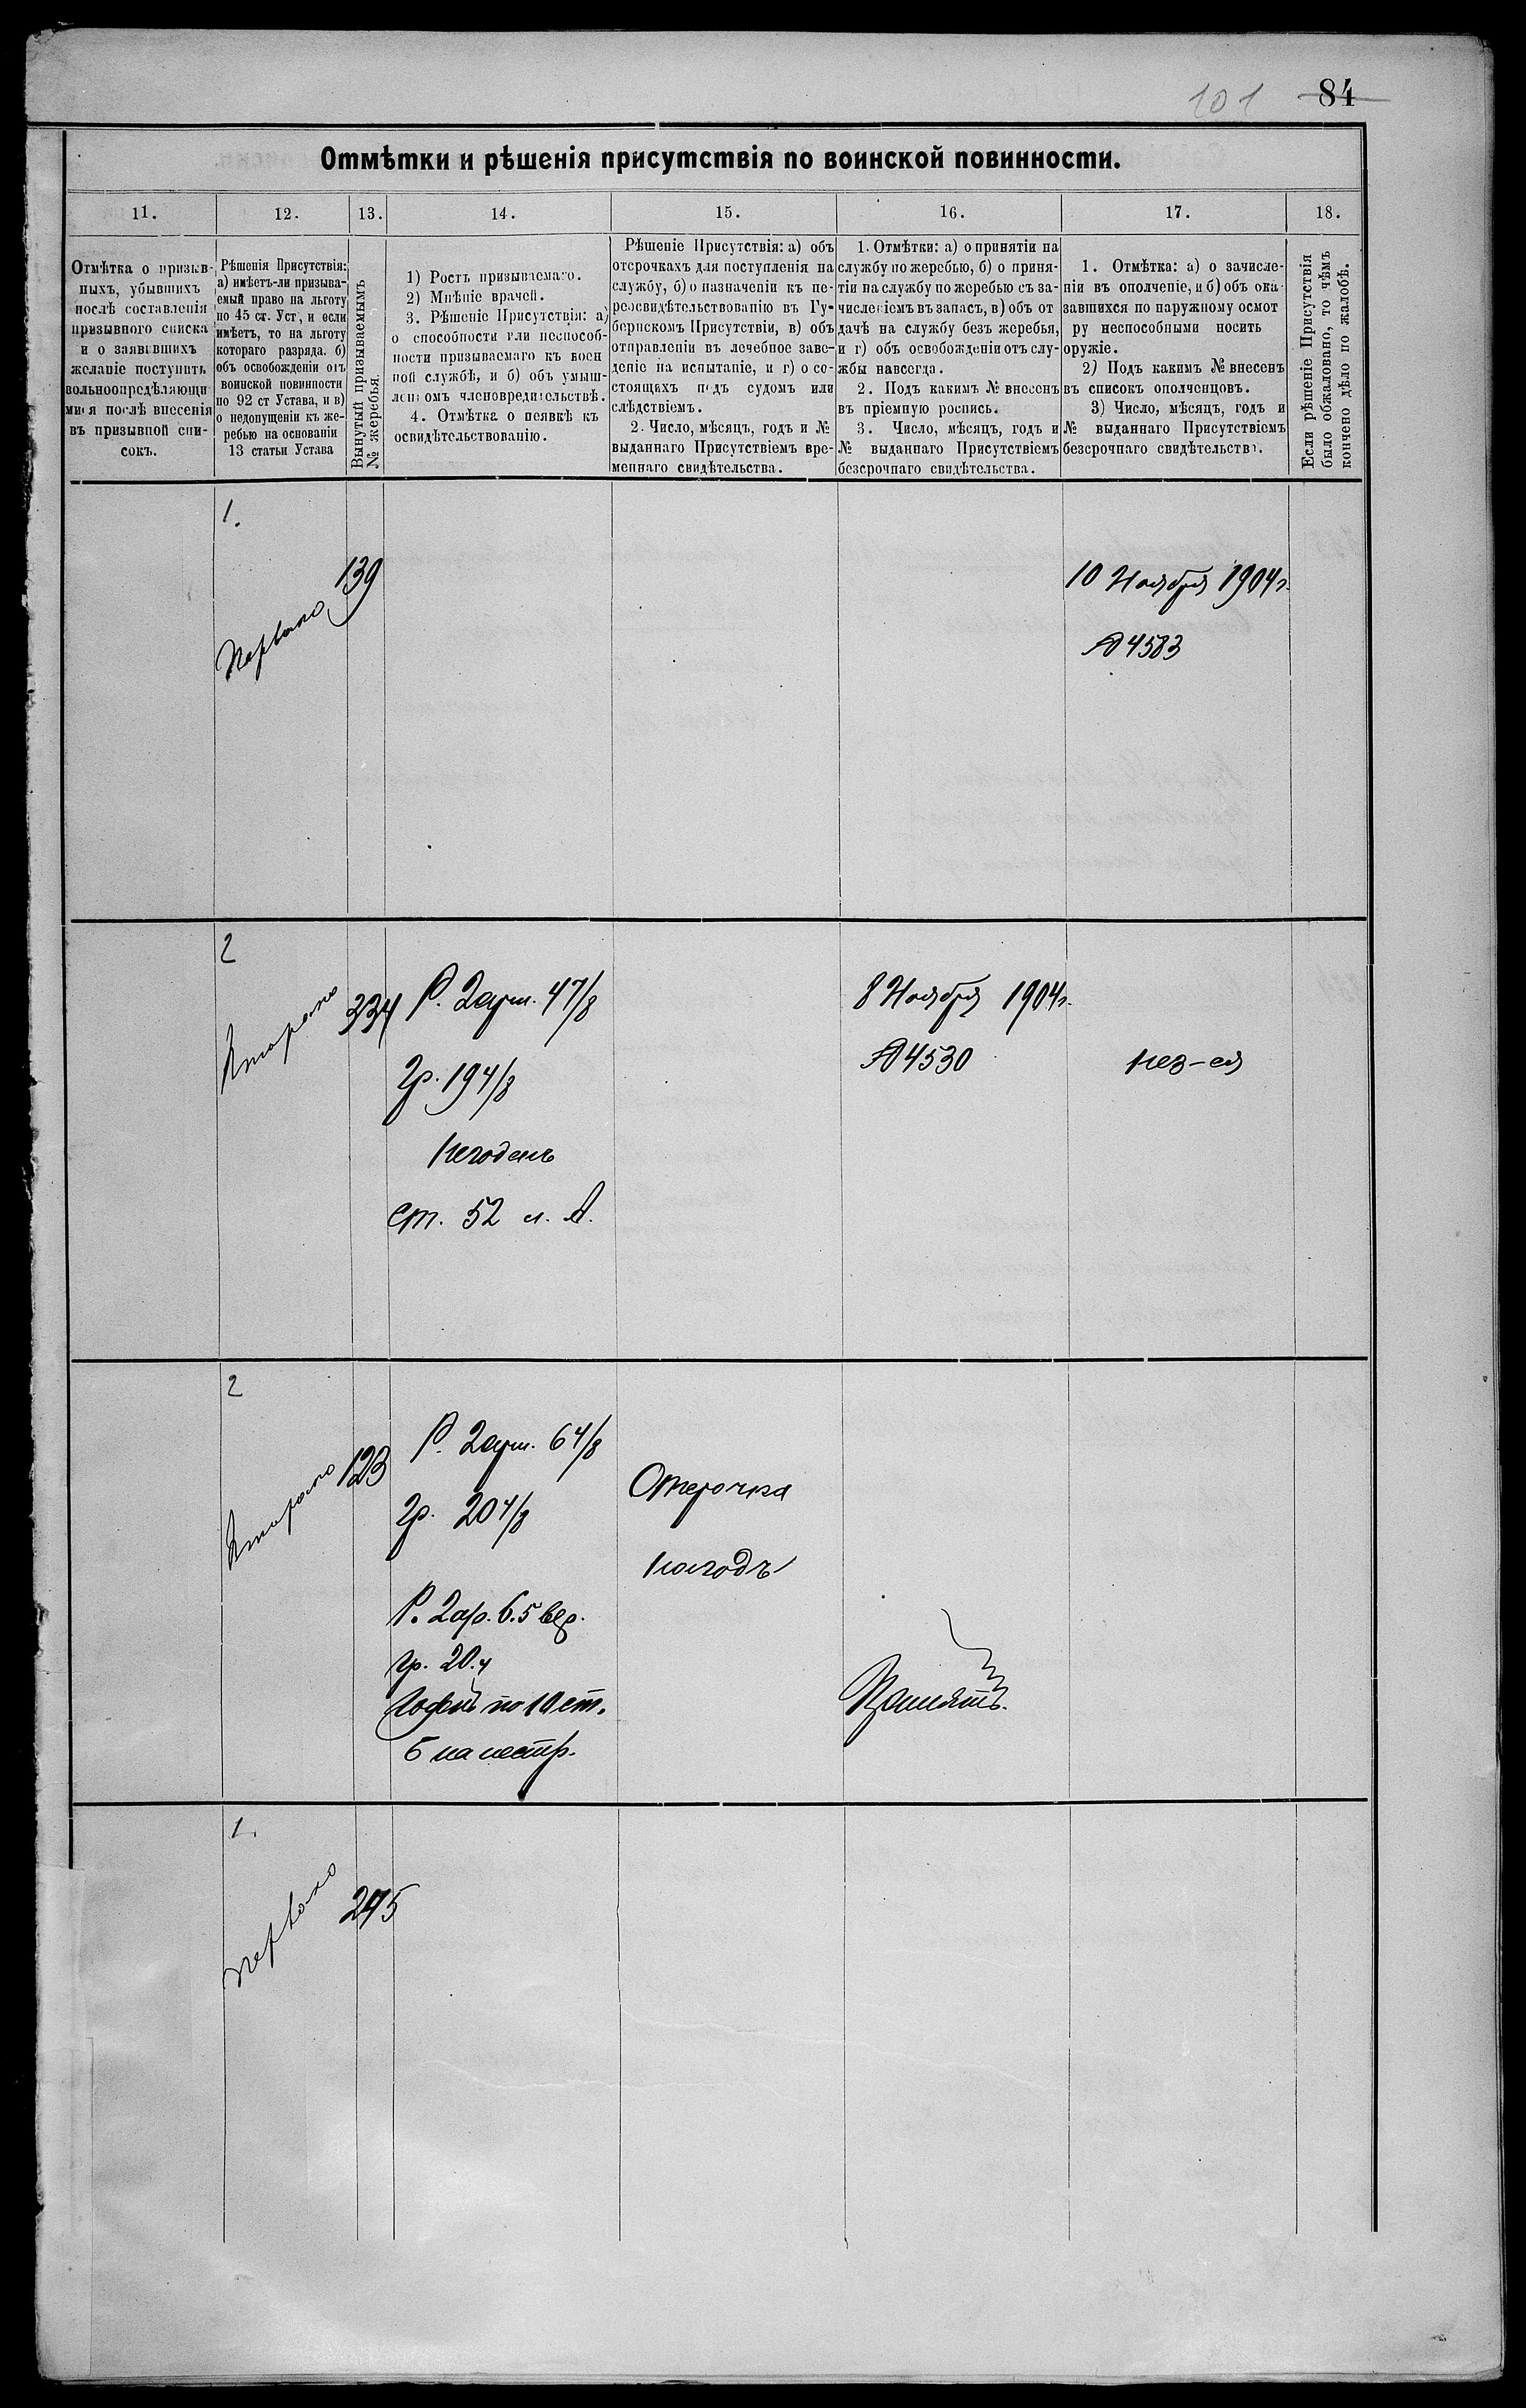 101 84
Отмѣтки и рѣшенія присутствія по воинской повинности.
11. 12. 13. 14. 15. 16. 17. 18.
Отмѣтка о призыв-
ныхъ, убывшихъ
послѣ составленія
призывного списка
и о заявившихъ
желаніе поступить
вольноопредѣляющи
мися послѣ внесенія
въ призывной спи-
сокъ.
Рѣшенія Присутствія:
а) имѣетъ-ли призыва-
емый право на льготу
по 45 ст. Уст, и если
имѣетъ, то на льготу
котораго разряда. б)
объ освобожденіи отъ
воинской повинности
по 92 ст Устава, и в)
о недопущеніи къ же-
ребью на основаніи
13 статьи Устава
Вынутый призываемымъ
№ жеребья.
1) Ростъ призываемаго.
2) Мнѣніе врачей.
3. Рѣшеніе Присутствія: а)
о способности или неспособ-
ности призываемаго къ воен
ной службѣ, и б) объ умыш-
леномъ членовредительствѣ.
4. Отмѣтка о неявкѣ къ
освидѣтельствованію.
Рѣшеніе Присутствія: а) объ
отсрочкахъ для поступленія на
службу, б) о назначеніи къ пе-
реосвидѣтельствованію въ Гу-
бернскомъ Присутствіи, в) объ
отправленіи въ лечебное заве-
деніе на испытаніе, и г) о со-
стоящихъ подъ судомъ или
слѣдствіемъ.
2. Число, мѣсяцъ, годъ и №
выданнаго Присутствіемъ вре-
меннаго свидѣтельства.
1. Отмѣтки: а) о принятіи на
службу по жеребью, б) о приня-
тіи на службу по жеребью съ за-
численіемъ въ запасъ, в) объ от
дачѣ на службу безъ жеребья,
и г) объ освобожденіи отъ слу-
жбы навсегда.
2. Подъ какимъ № внесенъ
въ пріемную роспись.
3. Число, мѣсяцъ, годъ и
№ выданнаго Присутствіемъ
безсрочнаго свидѣтельства.
1. Отмѣтка: а) о зачисле-
ніи въ ополченіе, и б) объ ока-
завшихся по наружному осмот
ру неспособными носить
оружіе.
2) Подъ какимъ № внесенъ
въ списокъ ополченцовъ.
3) Число, мѣсяцъ, годъ и
№ выданнаго Присутствіемъ
безсрочнаго свидѣтельства.
Если рѣшеніе Присутствія
было обжаловано, то чѣмъ
кончено дѣло по жалобѣ.
1.
139
10 Ноября 1904г.
№ 4583
2
334
Р. 2арш. 4 7/8
Гр. 19 4/8
Негоденъ
Ст. 52 л. А.
8 Ноября 1904г.
№ 4530
2
123
Р. 2арш. 6 4/8
Гр. 20 4/8
Р. 2ар. 6.5 вер.
гр. 20.4
Отсрочка
на годъ
Принятъ.
1.
295